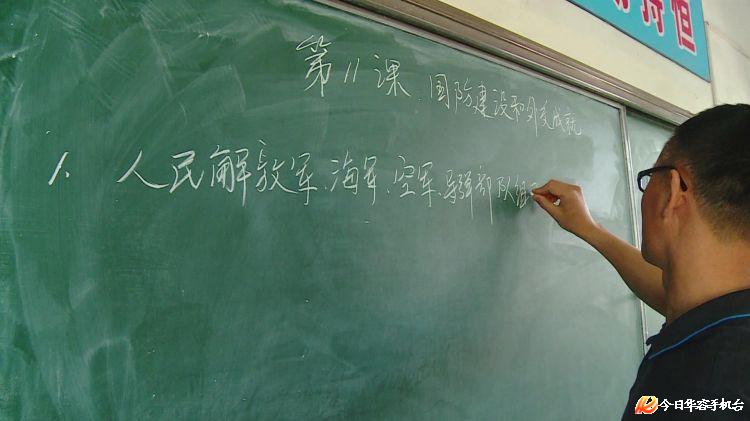 持恒
第11课 国防建设和外交成就
1、人民解放军、海军、空军、导弹部队组
今日华容手机台